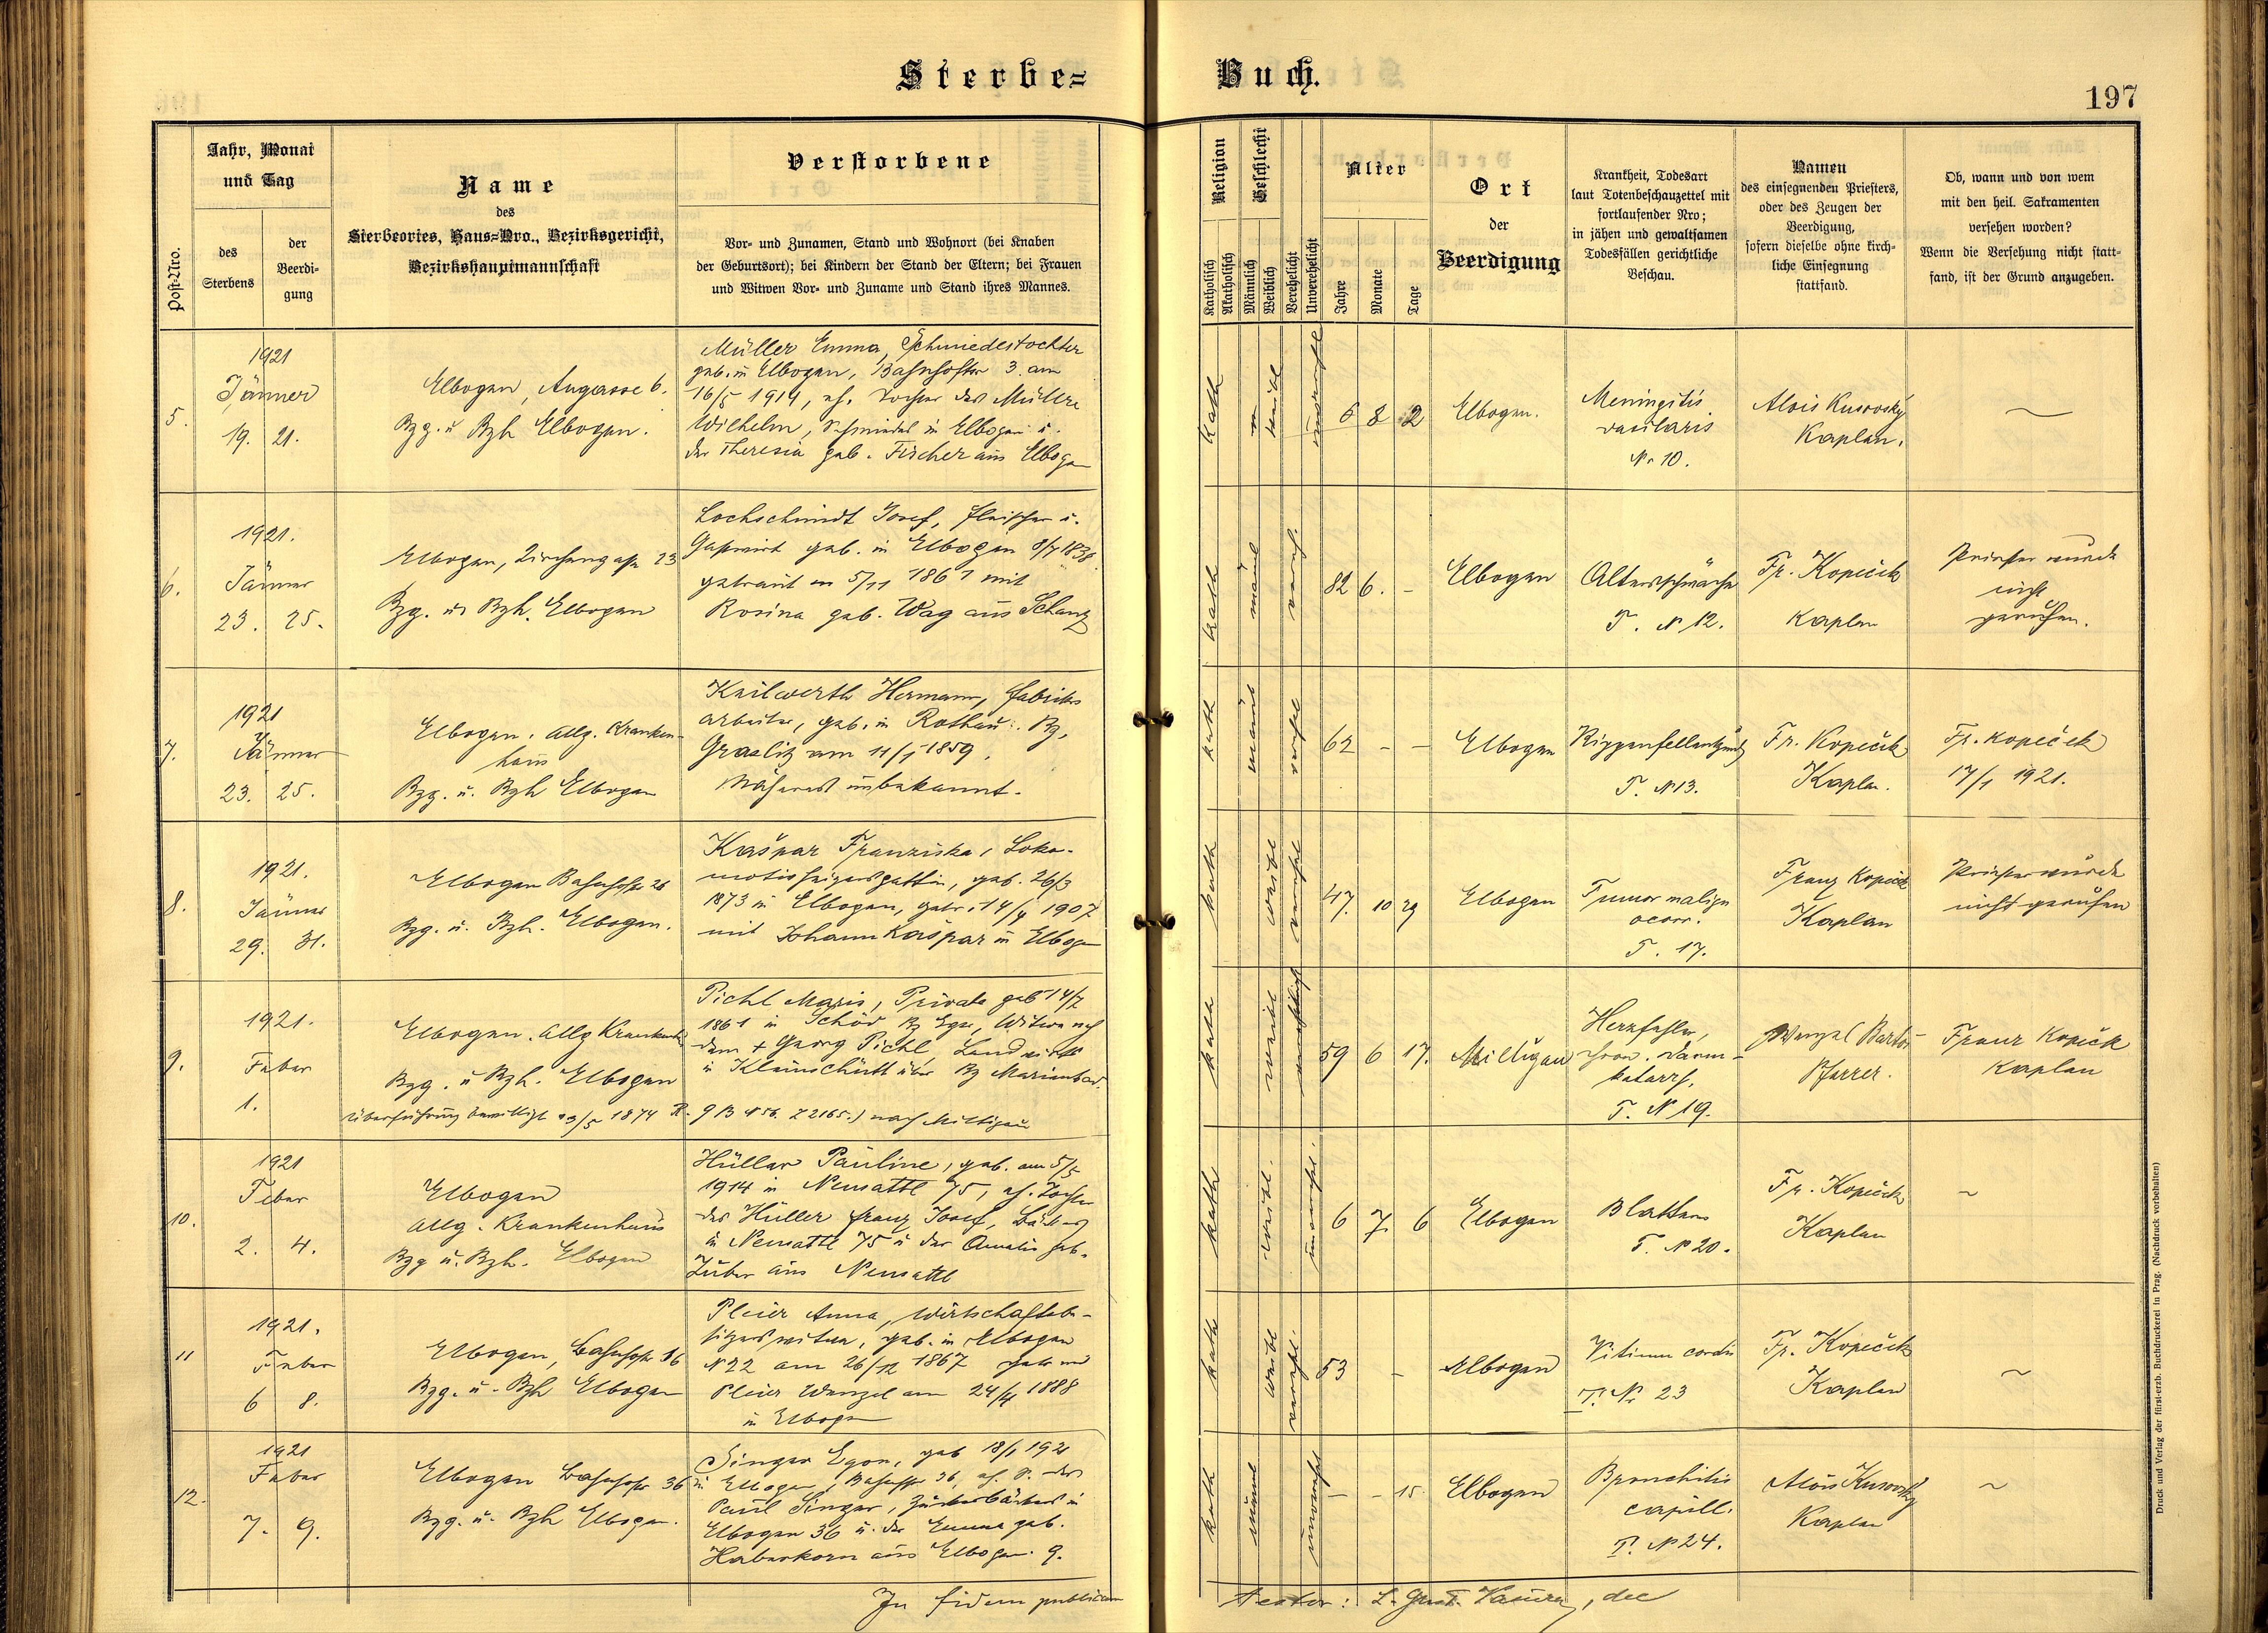 Sterbe=
Buch.
197
Post-Nro.
Jahr, Monat
und Tag
des
Sterbens
der
Beerdi-
gung
Name
des
Sterbeortes, Haus=Nro., Bezirksgericht,
Bezirkshauptmannschaft
Verstorbene
Vor- und Zunamen, Stand und Wohnort (bei Knaben
der Geburtsort); bei Kindern der Stand der Eltern; bei Frauen
und Witwen Vor- und Zuname und Stand ihres Mannes.
Religion
Katholisch
Akatholisch
Geschlecht
Männlich
Weiblich
Verehelicht
Unverehelicht
Alter
Jahre
Monate
Tage
Ort
der
Beerdigung
Krankheit, Todesart
laut Totenbeschauzettel mit
fortlaufender Nro;
in jähen und gewaltsamen
Todesfällen gerichtliche
Beschau.
Namen
des einsegnenden Priesters,
oder des Zeugen der
Beerdigung,
sofern dieselbe ohne kirch-
liche Einsegnung
stattfand.
Ob, wann und von wem
mit den heil. Sakramenten
versehen worden?
Wenn die Versehung nicht statt-
fand, ist der Grund anzugeben.
5.
1921
Jänner
19. 21.
Elbogen, Augasse 6.
Bzg. u Bzh Elbogen.
Müller Emma, Schmiedestochter
geb. in Elbogen, Bahnhofstr 3. am
16/5 1914, eh. Tochter des Müller
Wilhelm, Schmied in Elbogen u.
der Theresia geb. Fischer aus Elbogen
kath
weibl
unverehl
6 8 2
Elbogen.
Meningitis
Nr 10.
Alois Kusovský
Kaplan.
6.
1921.
Jänner
23. 25.
Elbogen, Kirchengasse 23
Bzg. u. Bzh. Elbogen
Lochschmidt Josef, Fleischer u.
Gastwirt geb. in Elbogen 8/7 1838
getraut am 5/11 1861 mit
Rosina geb. Wag aus Schanz
kath
männl
verehl.
82 6. -
Elbogen
Altersschwäche
T. N 12.
Fr. Kopeček
Kaplan
Priester wurde
nicht
gerufen.
7.
1921
Jänner
23. 25.
Elbogen. Allg. Kranken-
haus
Bzg. u. Bzh Elbogen
Keilwerth Hermann, Fabriks
arbeiter, geb. in Rothau. Bz.
Graslitz am 11/1 1859.
Näheres unbekannt.
kath
männl
verehl
62 - -
Elbogen
Rippenfellentzünd
T. N 13.
Fr. Kopeček
Kaplan.
Fr. Kopeček
17/1 1921.
8.
1921.
Jänner
29. 31.
Elbogen Bahnhofstr 26
Bzg. u. Bzh. Elbogen.
Kašpar Franziska, Loko-
motivheizersgattin, geb. 26/3
1873 in Elbogen, getr. 14/4 1907
mit Johann Kašpar in Elbogen
kath
weibl
verehl
47. 10 29
Elbogen
Tumor malign
T. 17.
Franz Kopeček
Kaplan
Priester wurde
nicht gerufen
9.
1921.
Feber
1.
Elbogen. Allg Krankenh
Bzg. u Bzh. Elbogen
Pichl Marie, Private geb 14/7
1861 in Schöd Bz Eger, Witwe nach
dem + Georg Pichl Landwirth
in Kleinschütt über Bz Marienbad.
Überführung bewilligt 3/5 1874 R. G B N 56. Z 2165.) nach Miltigau
kath
weibl
59 6 17.
Miltigau
Herzfehler,
chron. Darm-
katarrh.
T. N 19.
Wenzel Bartoš
Pfarrer.
Franz Kopeček
Kaplan
10.
1921
Feber
2. 4.
Elbogen
Allg. Krankenhaus
Bzg u. Bzh. Elbogen
Hüller Pauline, geb. am 5/5
1914 in Neusattl 75, eh. Tochter
des Hüller Franz Josef, Bäckers
in Neusattl 75 u der Amalie geb.
Zuber aus Neusattl
kath
weibl.
unverehl.
6 7. 6
Elbogen
Blattern
T. N 20.
Fr. Kopeček
Kaplan
11
1921.
Feber
6 8.
Elbogen, Bahnhofstr 36
Bzg. u. Bzh Elbogen
Pleier Anna, Wirtschaftsbe-
sitzerswitwe, geb. in Elbogen
N 22 am 26/12 1867 getr mit
Pleier Wenzel am 24/4 1888
in Elbogen
kath
weibl
verehl.
53 -
Elbogen
Vitium cordis
T. Nr 23
Fr. Kopeček
Kaplan
12.
1921
Feber
7. 9.
Elbogen Bahnhofstr 36
Bzg. u. Bzh Elbogen.
Singer Egon, geb 18/1 1921
in Elbogen, Bahnhofstr 36, eh. S. des
Paul Singer, Zuckerbäckers in
Elbogen 36 u. der Emma geb.
Haberkorn aus Elbogen 9.
kath
männl
unverehl
- - 15
Elbogen
Bronchitis
capill.
T. N 24.
Alois Kusovský
Kaplan
In fidem publicam
testor:
dec
Druck und Verlag der fürst-erzb. Buchdruckerei in Prag. (Nachdruck vorbehalten)